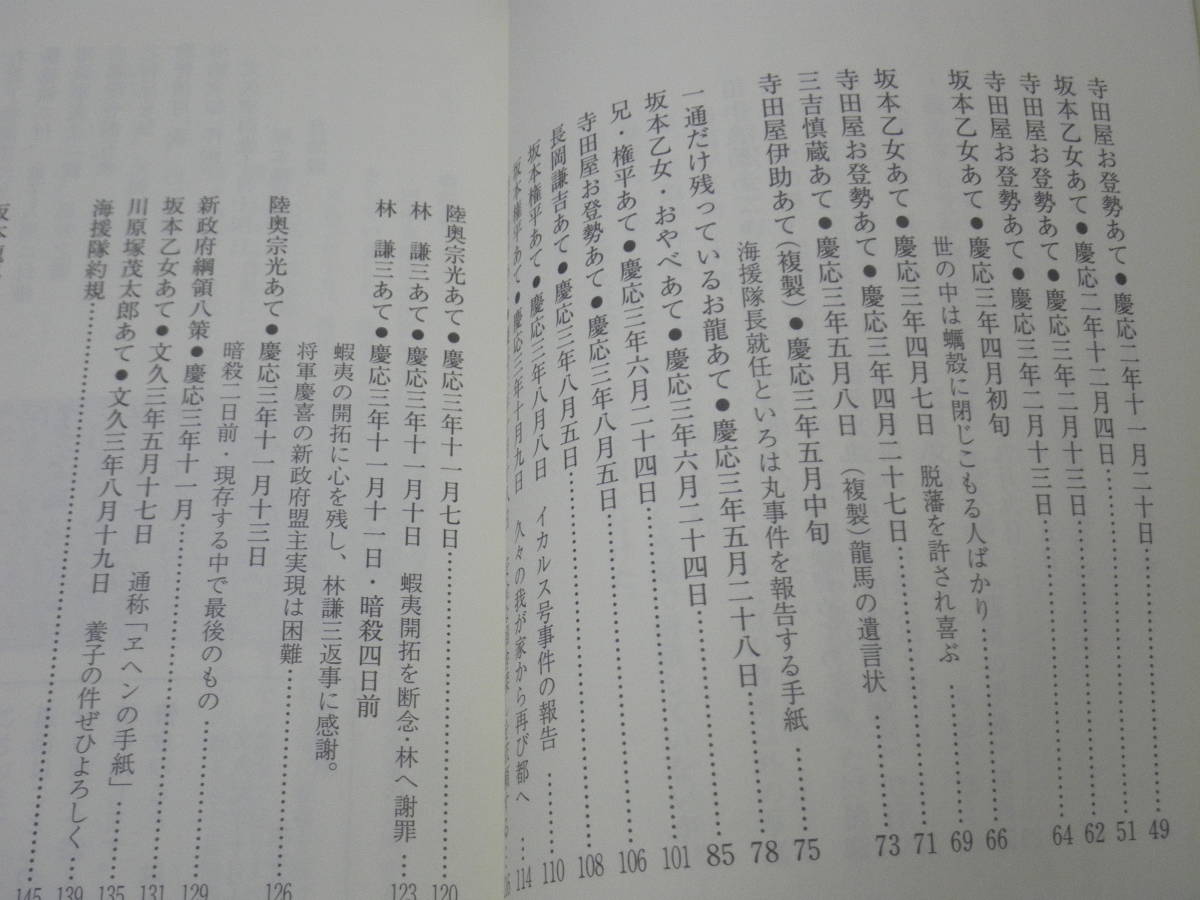 寺田屋お登勢あて●慶応二年十一月二十日……49
坂本乙女あて●慶応二年十二月四日……51
寺田屋お登勢あて●慶応三年二月十三日……62
寺田屋お登勢あて●慶応三年二月十三日……64
坂本乙女あて●慶応三年四月初旬
世の中は蠣殻に閉じこもる人ばかり……66
坂本乙女あて●慶応三年四月七日 脱藩を許され喜ぶ……69
寺田屋お登勢あて●慶応三年四月二十七日……71
三吉慎蔵あて●慶応三年五月八日 (複製)龍馬の遺言状……73
寺田屋伊助あて(複製)●慶応三年五月中旬
海援隊長就任といろは丸事件を報告する手紙……75
一通だけ残っているお龍あて●慶応三年五月二十八日……78
坂本乙女・おやべあて●慶応三年六月二十四日……85
兄・権平あて●慶応三年六月二十四日……101
寺田屋お登勢あて●慶応三年八月五日……106
長岡謙吉あて●慶応三年八月五日……108
坂本権平あて●慶応三年八月八日 イカルス号事件の報告……110
坂本権平あて●慶応三年十月九日 久々の我が家から再び都へ……114
陸奥宗光あて●慶応三年十一月七日……120
林 謙三あて●慶応三年十一月十日 蝦夷開拓を断念・林へ謝罪……123
林 謙三あて●慶応三年十一月十一日・暗殺四日前
蝦夷の開拓に心を残し、林謙三返事に感謝。
将軍慶喜の新政府盟主実現は困難……126
陸奥宗光あて●慶応三年十一月十三日
暗殺二日前・現存する中で最後のもの……129
新政府綱領八策●慶応三年十一月……131
坂本乙女あて●文久三年五月十七日 通称「ヱヘンの手紙」……135
川原塚茂太郎あて●文久三年八月十九日 養子の件ぜひよろしく……139
海援隊約規……145